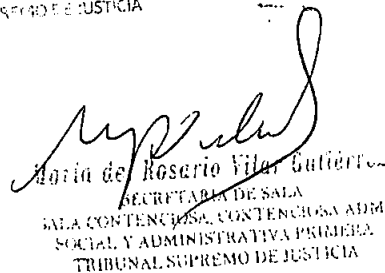 DE JUSTICIA
María del Rosario Vilar Gutiérre
SECRETARIA DE SALA
SALA CONTENCIOSA, CONTENCIOSA ADM
SOCIAL Y ADMINISTRATIVA PRIMERA
TRIBUNAL SUPREMO DE JUSTICIA